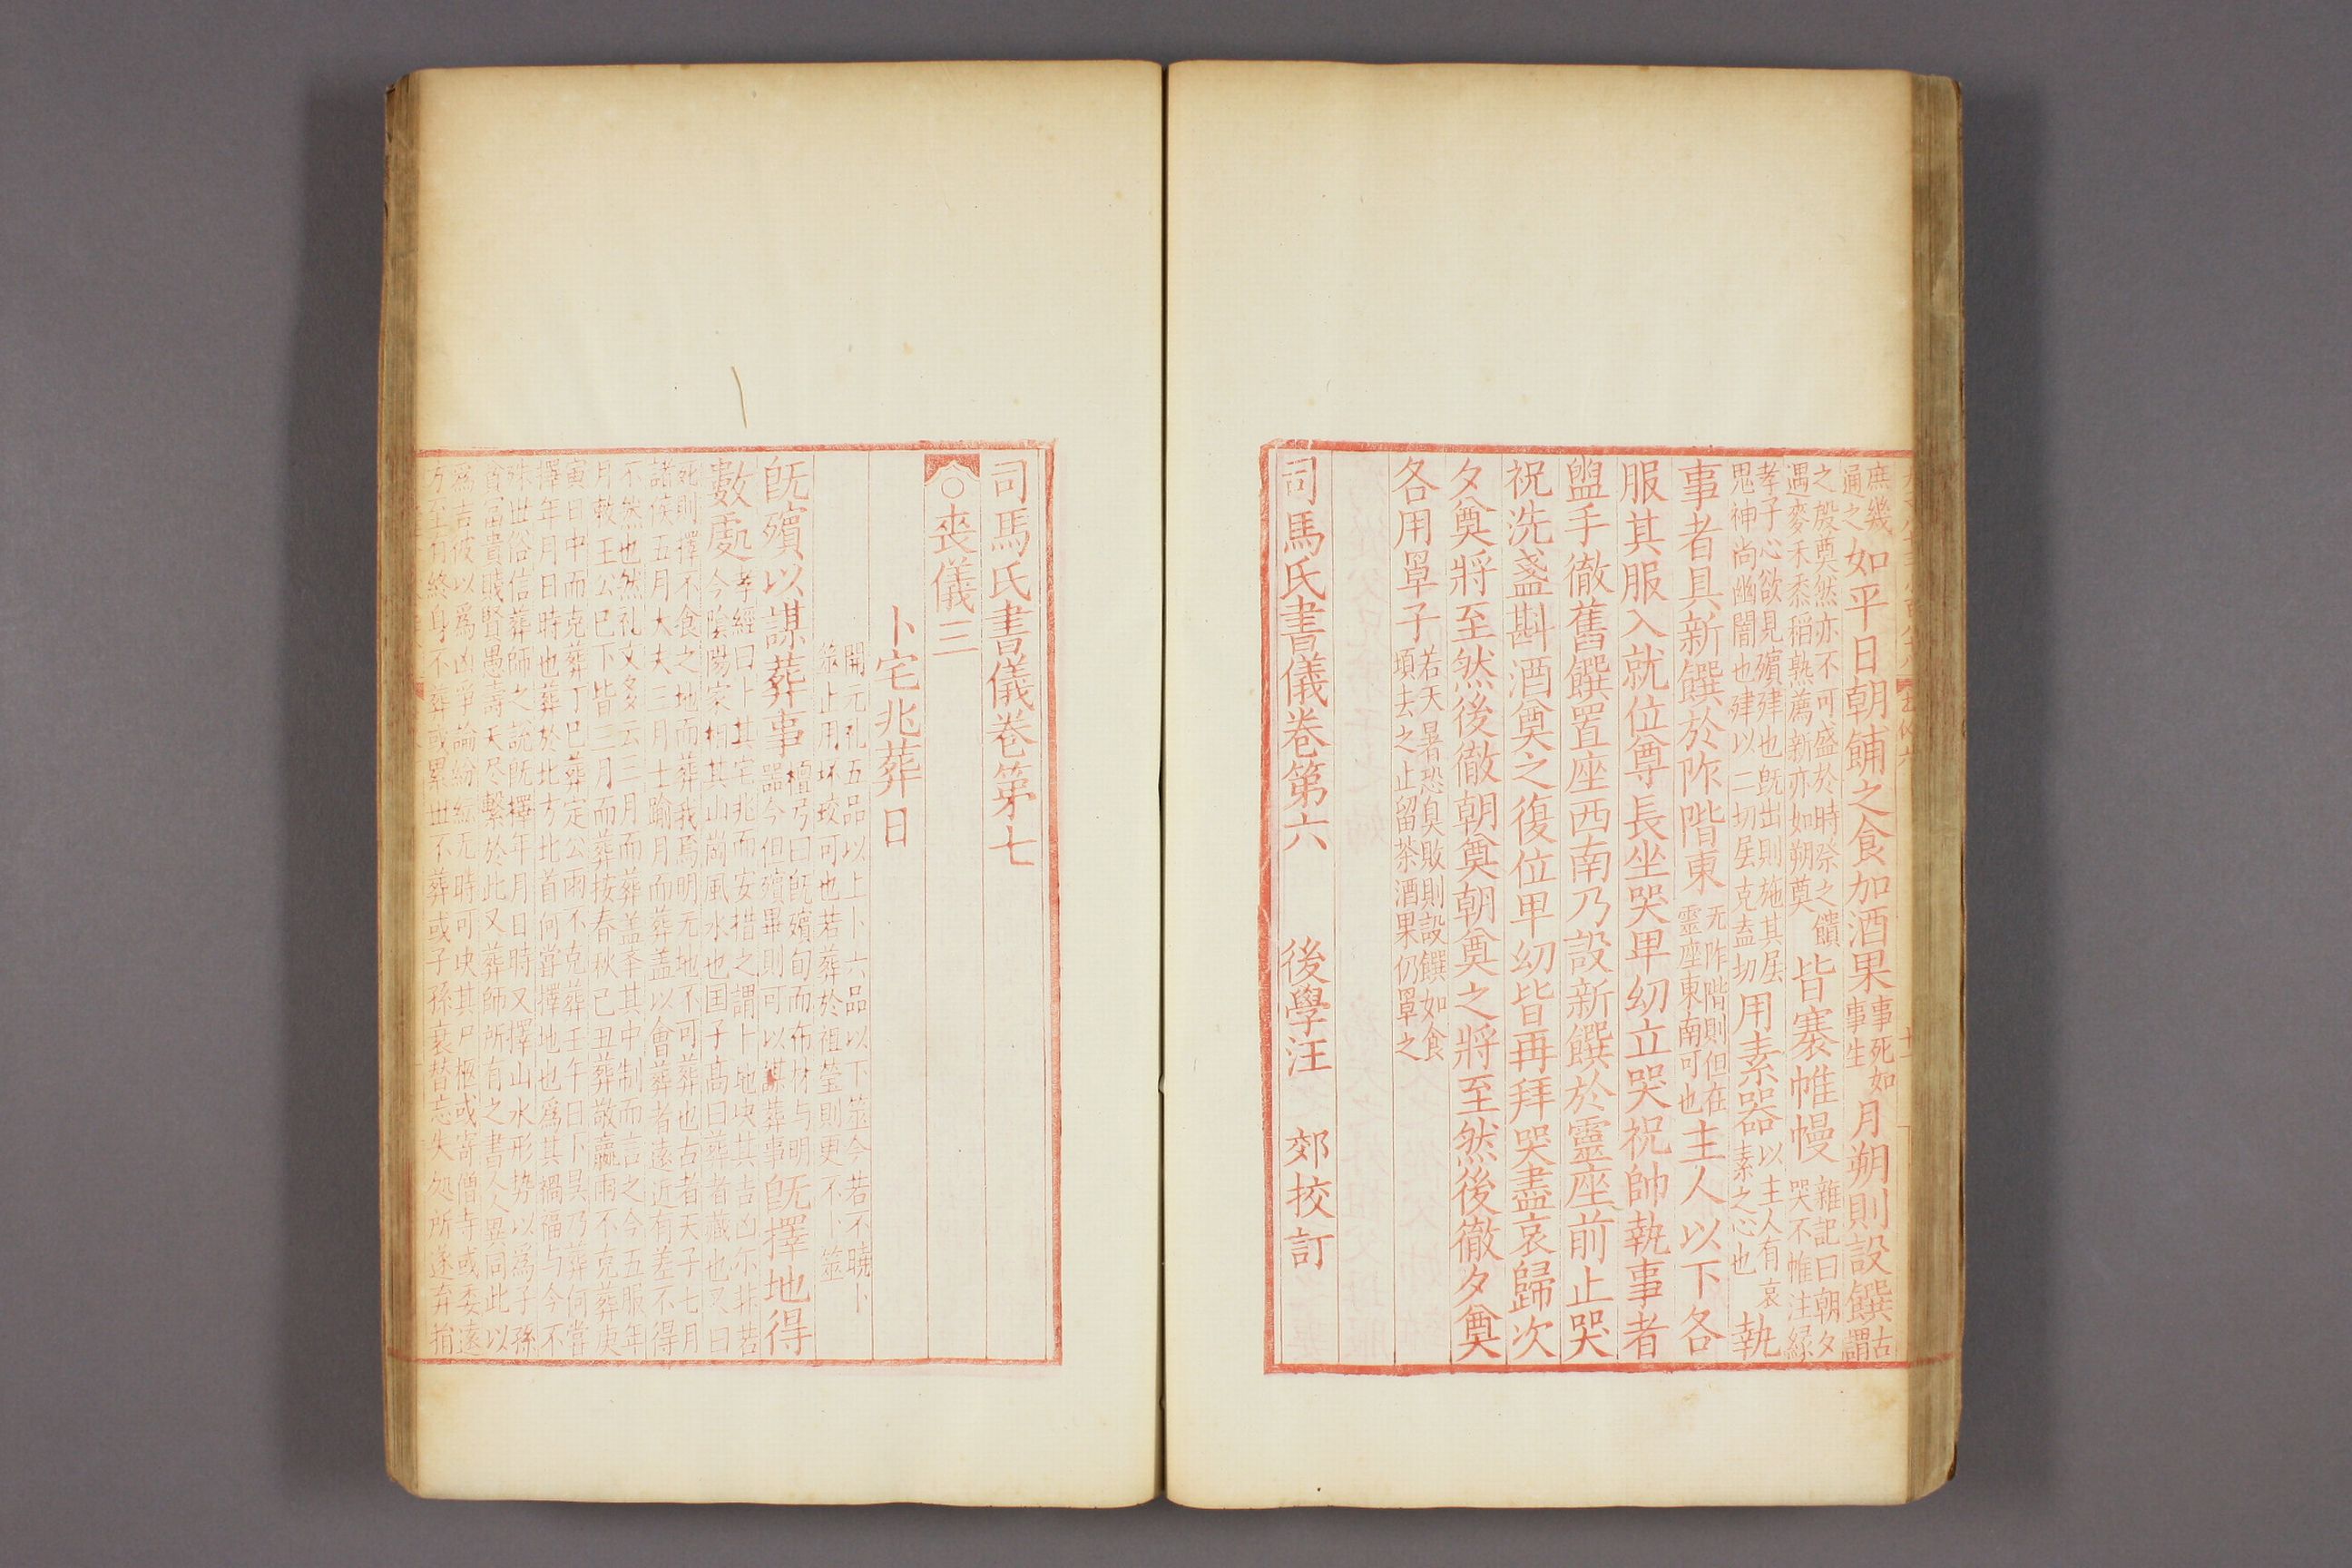 庶幾通之如平日朝餔之食加酒果事死如事生月朔則設饌古謂
之殷奠然亦不可盛於時祭之饋遇麥禾黍稻熟薦新亦如朔奠皆褰帷幔雜記曰朝夕哭不帷注緑
孝子心欲見殯肂也既出則施其扂鬼神尚幽闇也肂以二切扂克盍切用素器以主人有哀素之心也執
事者具新饌於阼階東无阼階則但在靈座東南可也主人以下各
服其服入就位尊長坐哭卑幼立哭祝帥執事者
盥手徹舊饌置座西南乃設新饌於靈座前止哭
祝洗盞斟酒奠之復位卑幼皆再拜哭盡哀歸次
夕奠將至然後徹朝奠朝奠之將至然後徹夕奠
各用罩子若天暑恐臭敗則設饌如食頃去之止留茶酒果仍罩之
司馬氏書儀卷第六 後學汪 郊挍訂
司馬氏書儀卷第七
○喪儀三
卜宅兆葬日
開元礼五品以上卜六品以下筮今若不曉卜筮止用坏珓可也若葬於祖塋則更不卜筮
既殯以謀葬事檀弓曰既殯旬而布材与明器今但殯畢則可以謀葬事既擇地得
數處孝經曰卜其宅兆而安措之謂卜地决其吉凶尓非若今陰陽家相其山崗風水也国子高曰葬者藏也又曰
死則擇不食之地而葬我焉明无地不可葬也古者天子七月諸侯五月大夫三月士踰月而葬盖以會葬者遠近有差不得
不然也然礼文多云三月而葬盖舉其中制而言之今五服年月敕王公已下皆三月而葬按春秋己丑葬敬嬴雨不克葬庚
寅日中而克葬丁巳葬定公雨不克葬壬午日下昃乃葬何當擇年月日時也葬於北方北首何當擇地也為其禍福与今不
殊世俗信葬師之說既擇年月日時又擇山水形势以為子孫貧富貴賤賢愚壽夭尽繫於此又葬師所有之書人人異同此以
為吉彼以為凶爭論紛紜无時可决其尸柩或寄僧寺或委遠方至有終身不葬或累世不葬或子孫衰替忘失処所遂弃捐